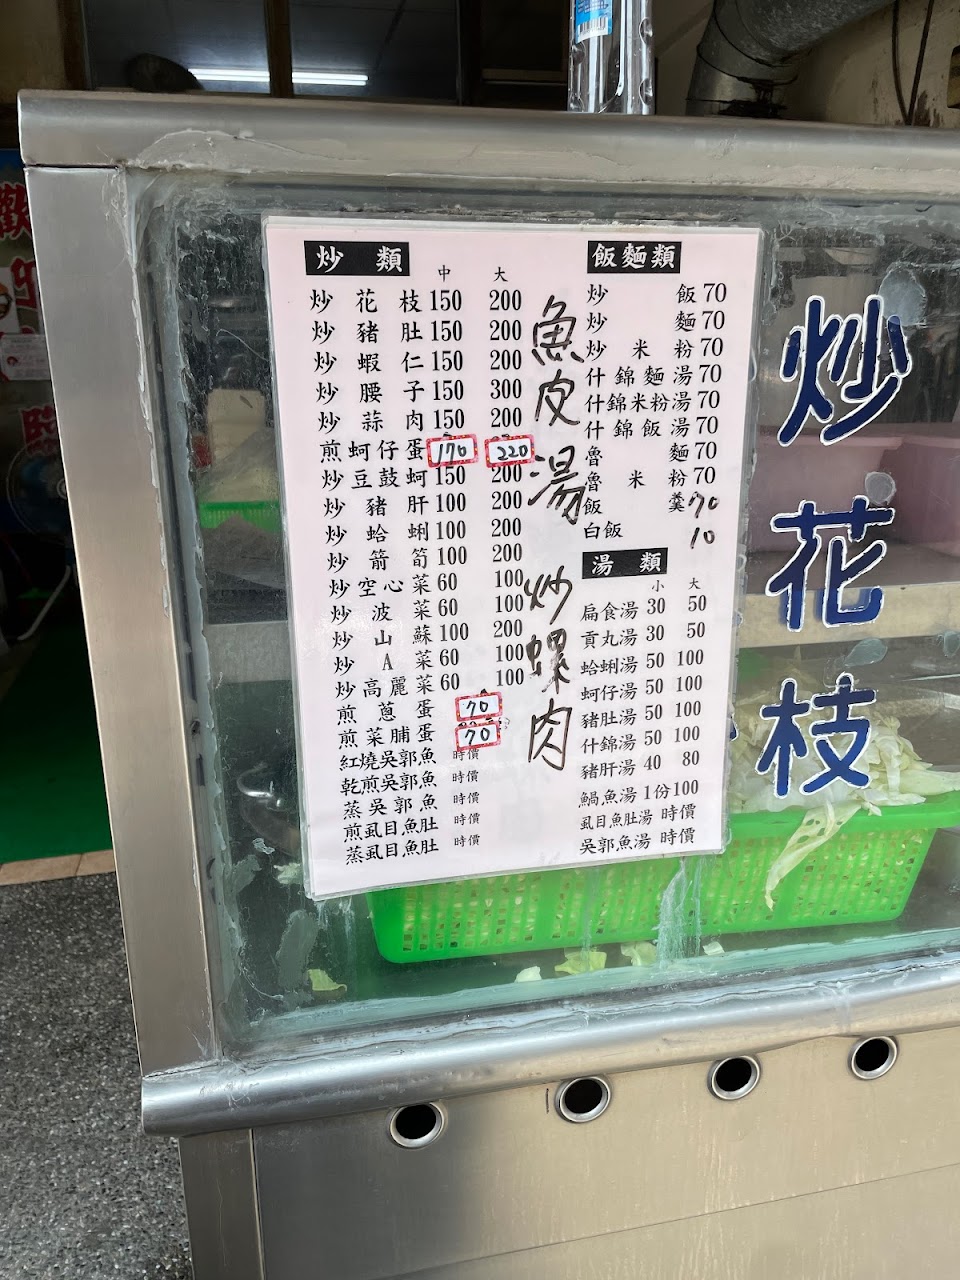 炒類
中 大
炒花枝 150 200
炒豬肚 150 200
炒蝦仁 150 200
炒腰子 150 300
炒蒜肉 150 200
煎蚵仔蛋 170 220
炒豆鼓蚵 150 200
炒豬肝 100 200
炒蛤蜊 100 200
炒箭筍 100 200
炒空心菜 60 100
炒波菜 60 100
炒山蘇 100 200
炒A菜 60 100
炒高麗菜 60 100
煎蔥蛋 70
煎菜脯蛋 70
紅燒吳郭魚 時價
乾煎吳郭魚 時價
蒸吳郭魚 時價
煎虱目魚肚 時價
蒸虱目魚肚 時價
魚皮湯 炒螺肉
飯麵類
炒飯 70
炒麵 70
炒米粉 70
什錦麵湯 70
什錦米粉湯 70
什錦飯湯 70
魯麵 70
魯米粉 70
飯羹 70
白飯 10
湯類
小 大
扁食湯 30 50
貢丸湯 30 50
蛤蜊湯 50 100
蚵仔湯 50 100
豬肚湯 50 100
什錦湯 50 100
豬肝湯 40 80
鍋魚湯 1份100
虱目魚肚湯 時價
吳郭魚湯 時價
炒花枝
歡